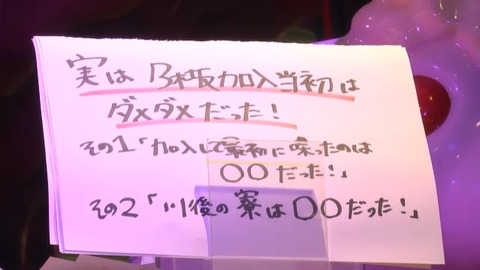 実は乃木坂加入当初は
ダメダメだった！
その1「加入して最初に喋ったのは
〇〇だった！」
その2「川後の寮は〇〇だった！」